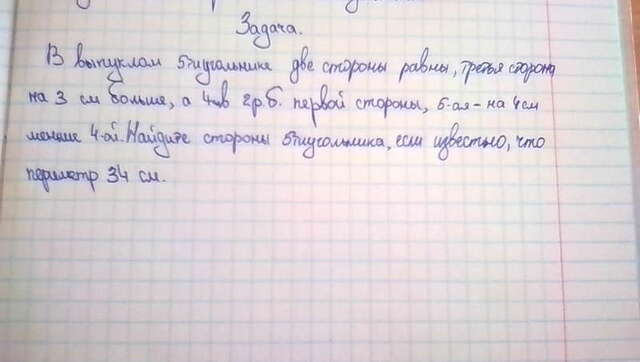 Задача.
В выпуклом 5-тиугольнике две стороны равны, третья сторона
на 3 см больше, а 4-ая в 2 р. б. первой стороны, 5-ая - на 4 см
меньше 4-ой. Найдите стороны 5-тиугольника, если известно, что
периметр 34 см.